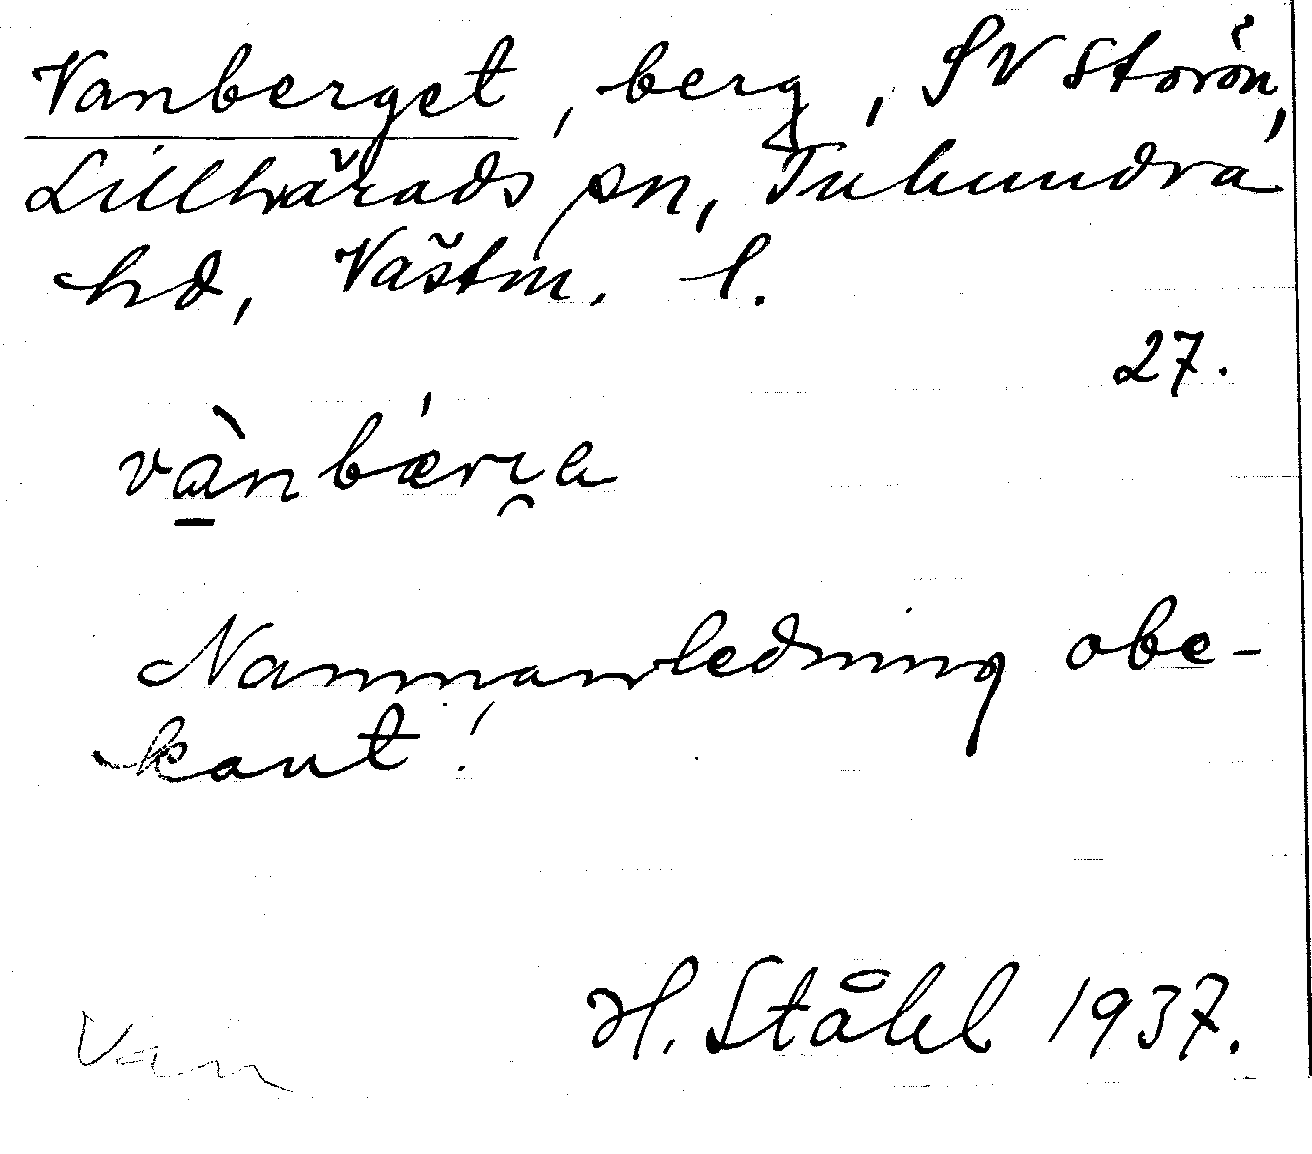 Vanberget, berg, SV Storön,
Lillhärads sn, Tuhundra
hd, Västm. l.
27.
vàn bærɪa
Namnanledning obe-
kant!
H. Ståhl 1937.
Van